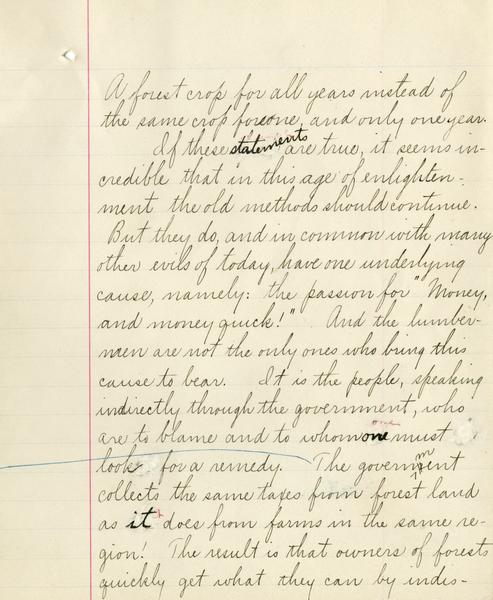 A forest crop for all years instead of
the same crop for one, and only one year.
If these statements are true, it seems in-
credible that in this age of enlighten-
ment the old methods should continue.
But they do, and in common with many
other evils of today, have one underlying
cause, namely: the passion for "Money,
and money quick!" And the lumber-
men are not the only ones who bring this
cause to bear. It is the people, speaking
indirectly through the government, who
one
are to blame and to whom one must
look for a remedy. The government
collects the same taxes from forest land
as it does from farms in the same re-
gion! The result is that owners of forests
quickly get what they can by indis-